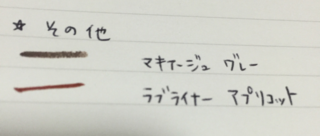 ☆ その他
マキアージュ グレー
ラブライナー アプリコット